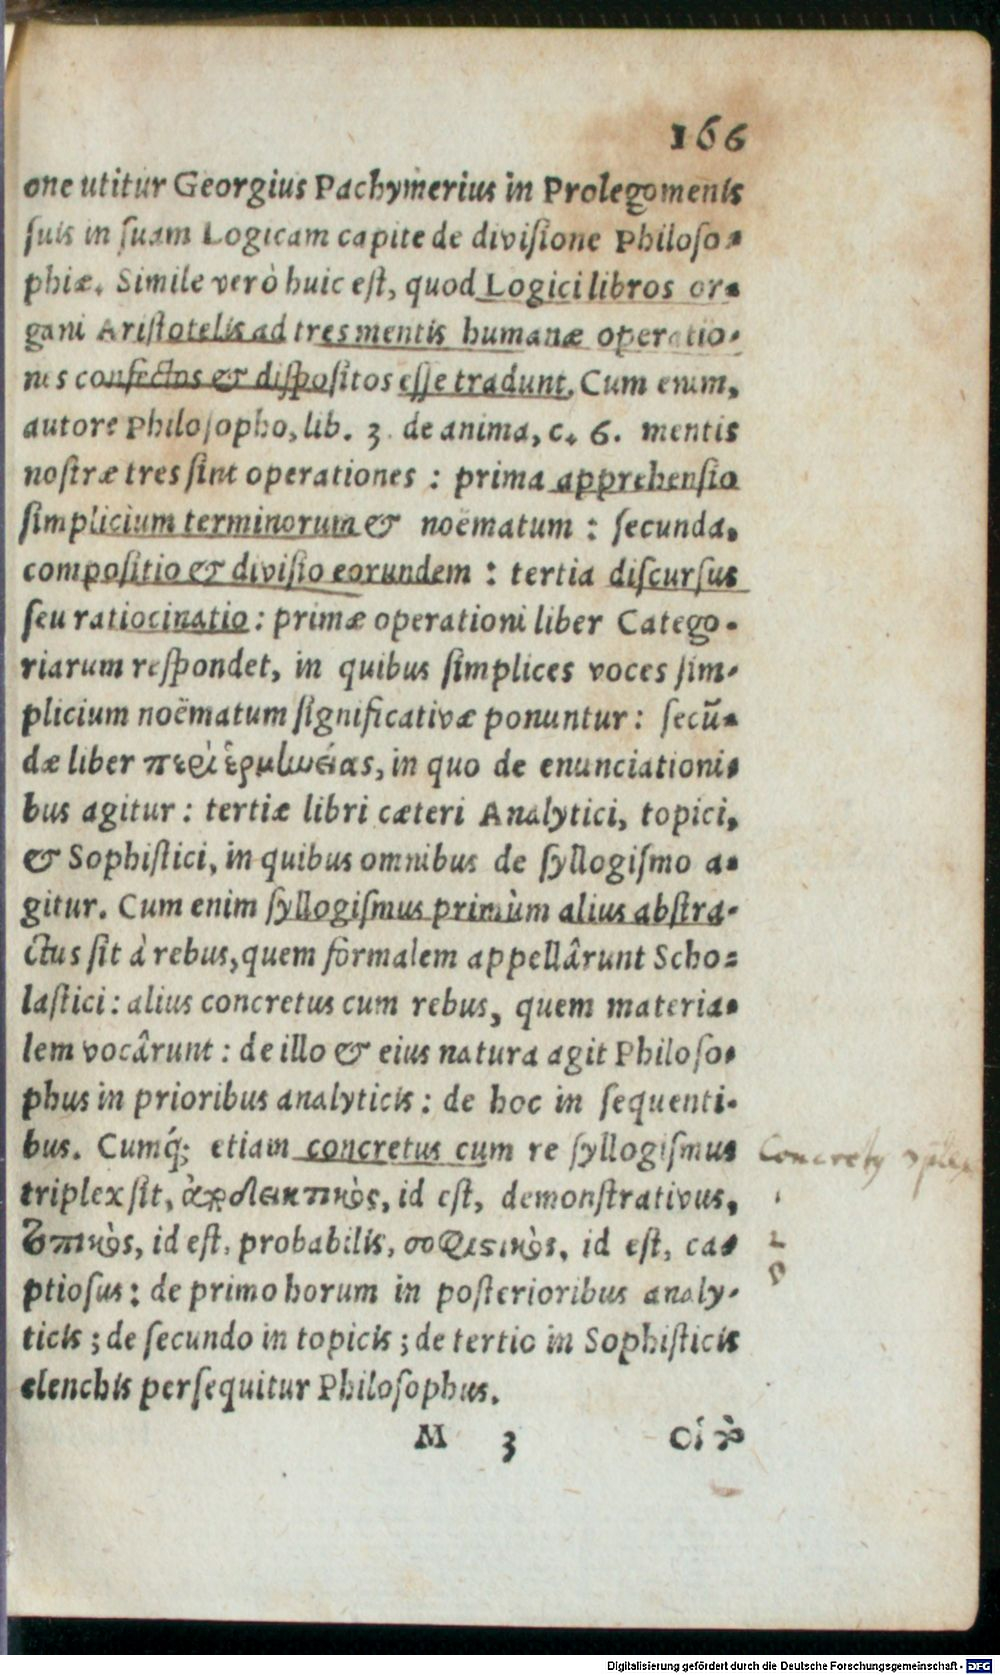 166
one utitur Georgius Pachymerius in Prolegomenis
suis in suam Logicam capite de divisione Philoso-
phiæ. Simile verò huic est, quod Logici libros or-
gani Aristotelis ad tres mentis humanæ operatio-
nes confectos & dispositos esse tradunt. Cum enim,
autore Philosopho, lib. 3. de anima, c. 6. mentis
nostræ tres sint operationes : prima apprehensio
simplicium terminorum & noëmatum : secunda,
compositio & divisio eorundem : tertia discursus
seu ratiocinatio : primæ operationi liber Catego-
riarum respondet, in quibus simplices voces sim-
plicium noëmatum significativæ ponuntur : secū-
dæ liber περὶ ἑρμηνείας, in quo de enunciationi-
bus agitur : tertiæ libri cæteri Analytici, topici,
& Sophistici, in quibus omnibus de syllogismo a-
gitur. Cum enim syllogismus primùm alius abstra-
ctus sit à rebus, quem formalem appellârunt Scho-
lastici : alius concretus cum rebus, quem materia-
lem vocârunt : de illo & eius natura agit Philoso-
phus in prioribus analyticis : de hoc in sequenti-
bus. Cumq́; etiam concretus cum re syllogismus
triplex sit, ἀποδεικτικὸς, id est, demonstrativus,
τοπικὸς, id est, probabilis, σοφιστικὸς, id est, ca-
ptiosus : de primo horum in posterioribus analy-
ticis ; de secundo in topicis ; de tertio in Sophisticis
elenchis persequitur Philosophus.
M 3
1
2
Digitalisierung gefördert durch die Deutsche Forschungsgemeinschaft - DFG